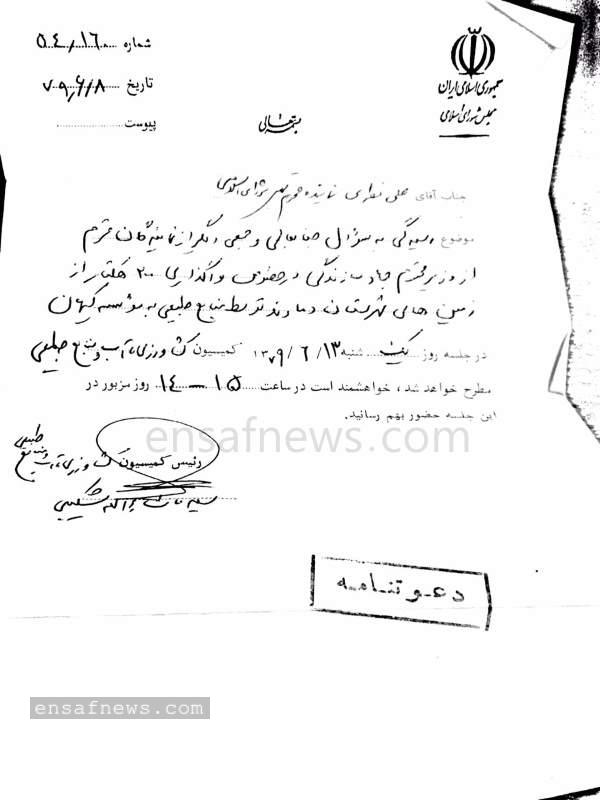 جمهوری اسلامی ایران
مجلس شورای اسلامی
شماره ۵۰۴/۱۶
تاریخ ۷۹/۶/۸
پیوست
بسمه تعالی
جناب آقای علی نظری نماینده محترم مجلس شورای اسلامی
موضوع رسیدگی به سؤال جنابعالی و جمعی دیگر از نمایندگان محترم
از وزیر محترم جهاد سازندگی در خصوص واگذاری ۲۰۰ هکتار از
زمین های شهرستان دماوند توسط منابع طبیعی به مؤسسه کیهان
در جلسه روز یک شنبه ۱۳۷۹/۶/۱۳ کمیسیون کشاورزی، آب و منابع طبیعی
مطرح خواهد شد، خواهشمند است در ساعت ۱۵ - ۱۴ روز مزبور در
این جلسه حضور بهم رسانید.
ensafnews.com
رئیس کمیسیون کشاورزی، آب و منابع طبیعی
شکیبی
دعوتنامه
ensafnews.com